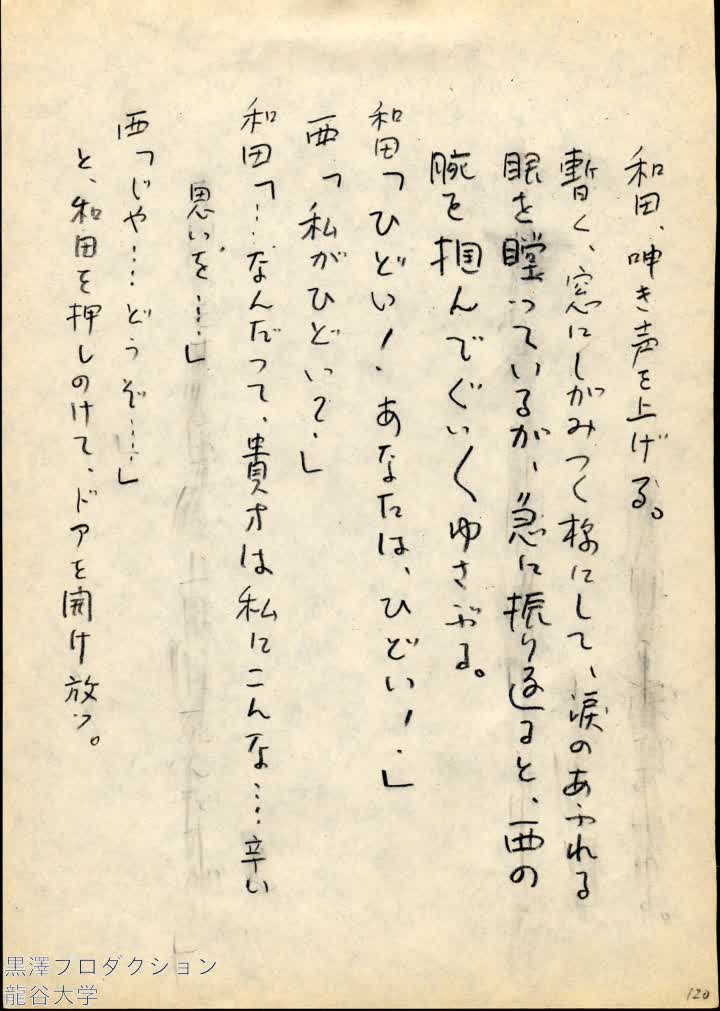 和田、呻き声を上げる。
暫く、窓にしがみつく様にして、涙のあふれる
眼を瞠っているが、急に振り返ると、西の
腕を掴んでぐい〳〵ゆさぶる。
和田「ひどい！ あなたは、ひどい！」
西「私がひどい？」
和田「…なんだって、貴方は私にこんな……辛い
思いを……」
西「じゃ……どうぞ……」
と、和田を押しのけて、ドアを開け放つ。
120
黒澤プロダクション
龍谷大学